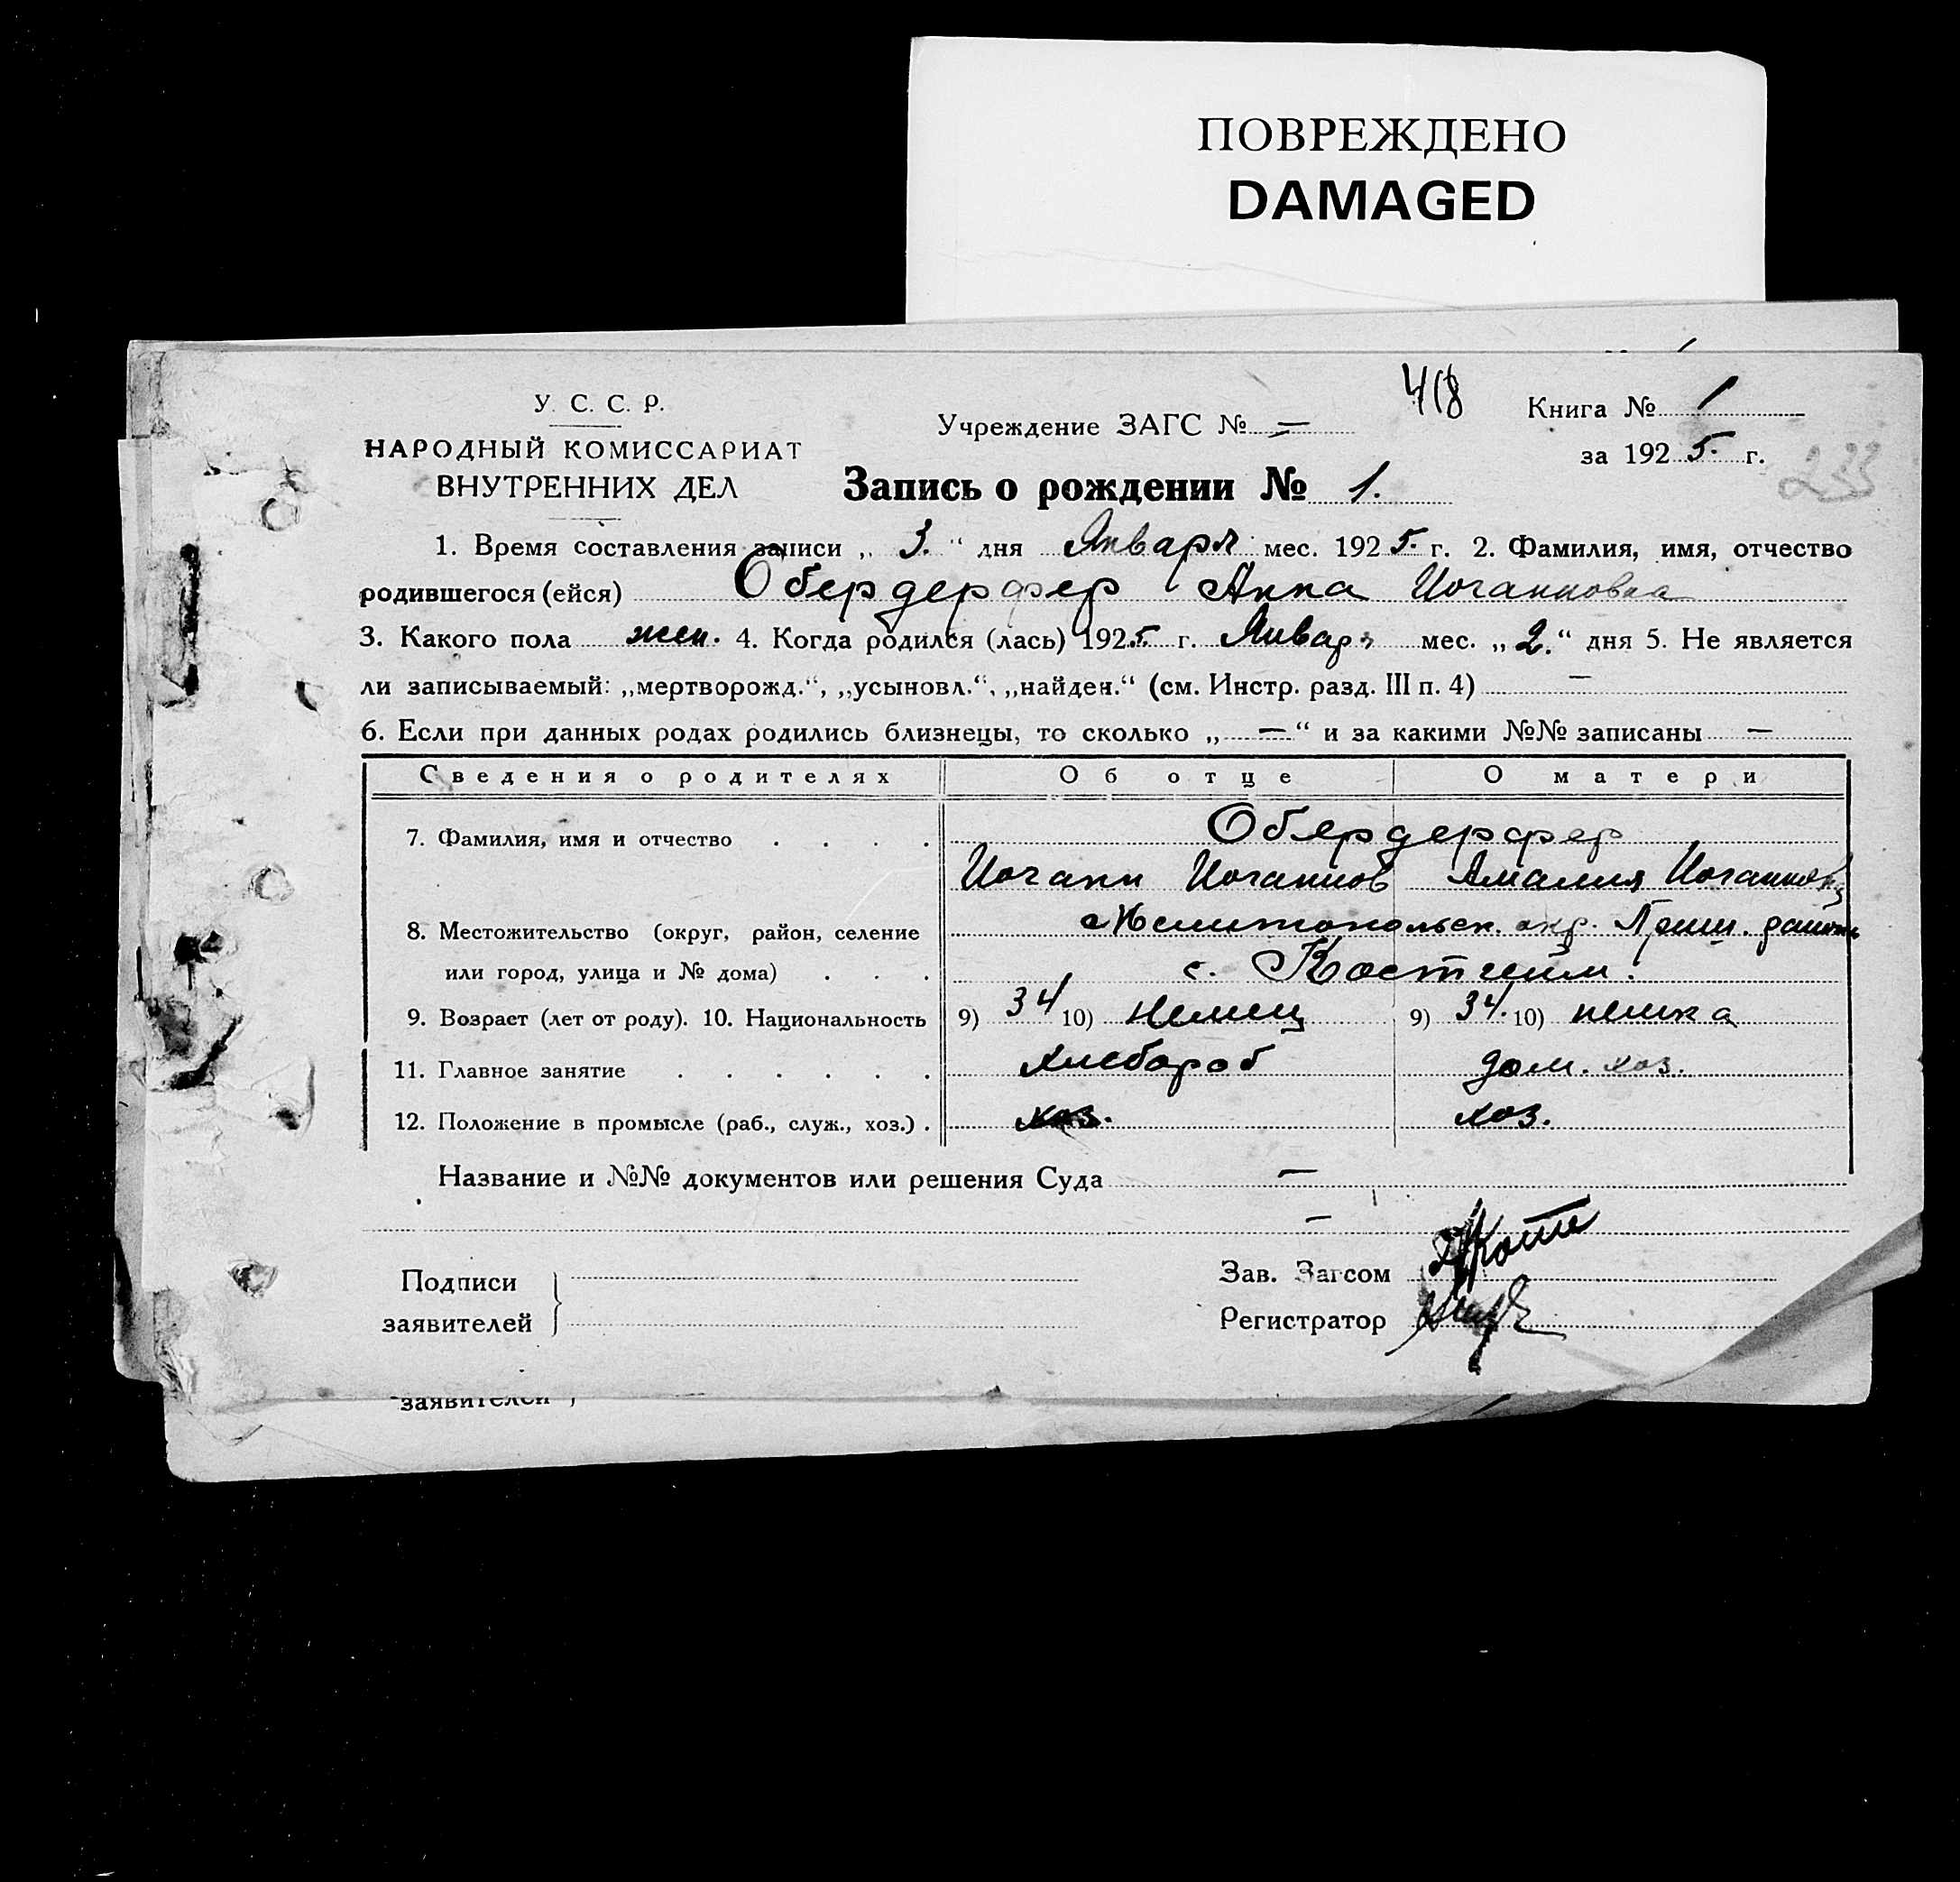 ПОВРЕЖДЕНО
DAMAGED
У. С. С. Р.
НАРОДНЫЙ КОМИССАРИАТ
ВНУТРЕННИХ ДЕЛ
Учреждение ЗАГС № —
418
Книга № 1
за 1925 г.
233
Запись о рождении № 1.
1. Время составления записи „ 3. “ дня Января мес. 1925 г. 2. Фамилия, имя, отчество
родившегося (ейся) Обердерфер Анна Иоганновна
3. Какого пола жен. 4. Когда родился (лась) 1925 г. Января мес. „ 2. “ дня 5. Не является
ли записываемый: „мертворожд.“, „усыновл.“, „найден.“ (см. Инстр. разд. III п. 4) —
6. Если при данных родах родились близнецы, то сколько „ — “ и за какими №№ записаны —
Сведения о родителях Об отце О матери
7. Фамилия, имя и отчество . . . . Обердерфер
Иоганн Иоганнов Амалия Иогановн
8. Местожительство (округ, район, селение Мелитопольск. окр. Приш. район
или город, улица и № дома) . . . с. Костгейм.
9. Возраст (лет от роду). 10. Национальность 9) 34 10) немец 9) 34. 10) немка
11. Главное занятие . . . . . . Хлебороб дом. хоз.
12. Положение в промысле (раб., служ., хоз.) . хоз. хоз.
Название и №№ документов или решения Суда —
—
Подписи
заявителей
Зав. Загсом
Регистратор
заявителей